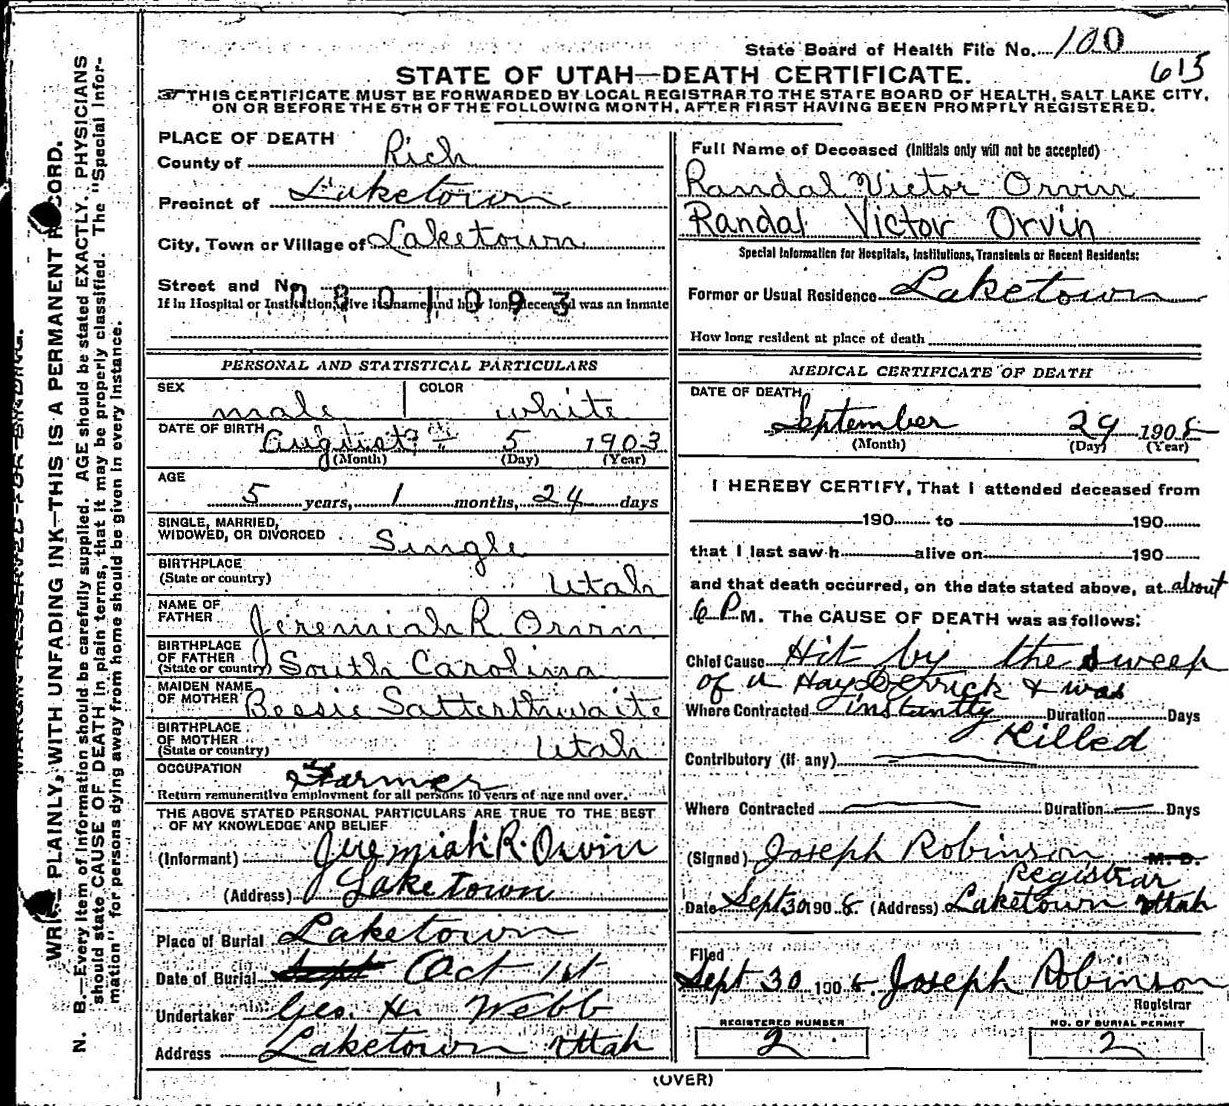 State Board of Health File No. 100
615
STATE OF UTAH—DEATH CERTIFICATE.
THIS CERTIFICATE MUST BE FORWARDED BY LOCAL REGISTRAR TO THE STATE BOARD OF HEALTH, SALT LAKE CITY,
ON OR BEFORE THE 5TH OF THE FOLLOWING MONTH, AFTER FIRST HAVING BEEN PROMPTLY REGISTERED.
PLACE OF DEATH
County of Rich
Precinct of Laketown
City, Town or Village of Laketown
Street and No.
If in Hospital or Institution, give its name and how long deceased was an inmate
0801093
PERSONAL AND STATISTICAL PARTICULARS
SEX male COLOR white
DATE OF BIRTH August 5 1903
(Month) (Day) (Year)
AGE
5 years, 1 months, 24 days
SINGLE, MARRIED,
WIDOWED, OR DIVORCED Single
BIRTHPLACE
(State or country) Utah
NAME OF
FATHER Jeremiah R Orvin
BIRTHPLACE
OF FATHER
(State or country) South Carolina
MAIDEN NAME
OF MOTHER Bessie Satterthwaite
BIRTHPLACE
OF MOTHER
(State or country) Utah
OCCUPATION Farmer
Return remunerative employment for all persons 10 years of age and over.
THE ABOVE STATED PERSONAL PARTICULARS ARE TRUE TO THE BEST
OF MY KNOWLEDGE AND BELIEF
(Informant) Jeremiah R. Orvin
(Address) Laketown
Place of Burial Laketown
Date of Burial Sept Oct 1st
Undertaker Geo. H. Webb
Address Laketown Utah
Full Name of Deceased (Initials only will not be accepted)
Randal Victor Orvin
Randal Victor Orvin
Special Information for Hospitals, Institutions, Transients or Recent Residents:
Former or Usual Residence Laketown
How long resident at place of death
MEDICAL CERTIFICATE OF DEATH
DATE OF DEATH
September 29 1908
(Month) (Day) (Year)
I HEREBY CERTIFY, That I attended deceased from
190 to 190
that I last saw h alive on 190
and that death occurred, on the date stated above, at about
6 P M. The CAUSE OF DEATH was as follows:
Chief Cause Hit by the sweep
of a Hay Derrick & was
Where Contracted instantly Duration Days
Killed
Contributory (if any)
Where Contracted Duration Days
(Signed) Joseph Robinson M. D.
Registrar
Date Sept 30 1908 (Address) Laketown Utah
Filed
Sept 30 1908. Joseph Robinson
Registrar
REGISTERED NUMBER
2
NO. OF BURIAL PERMIT
2
(OVER)
MARGIN RESERVED FOR BINDING.
WRITE PLAINLY, WITH UNFADING INK—THIS IS A PERMANENT RECORD.
N. B.—Every item of information should be carefully supplied. AGE should be stated EXACTLY. PHYSICIANS
should state CAUSE OF DEATH in plain terms, that it may be properly classified. The "Special Infor-
mation" for persons dying away from home should be given in every instance.